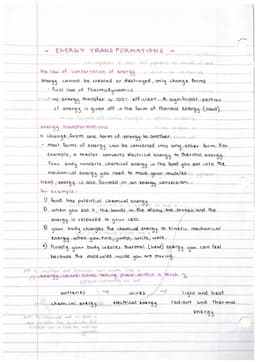 - ENERGY TRANSFORMATIONS -
the law of conservation of energy
energy cannot be created or destroyed, only change forms
- First law of Thermodynamics
- no energy transfer is 100% efficient. A significant portion
of energy is given off in the form of thermal energy (heat).
energy transformations
a change from one form of energy to another.
- most forms of energy can be converted into any other form. For
example, a toaster converts electrical energy to thermal energy.
Your body converts chemical energy in the food you eat into the
mechanical energy you need to move your muscles.
heat energy is also formed in an energy conversion.
for example:
1) food has potential chemical energy
2) when you eat it, the bonds in the atoms are broken and the
energy is released to your cells
3) your body changes the chemical energy to kinetic mechanical
energy when you run, jump, write, work.
4) Finally your body creates thermal (heat) energy you can feel
because the molecules inside you are moving.
energy conversions taking place within a torch
batteries → wires → light and heat
chemical energy electrical energy radiant and thermal
energy